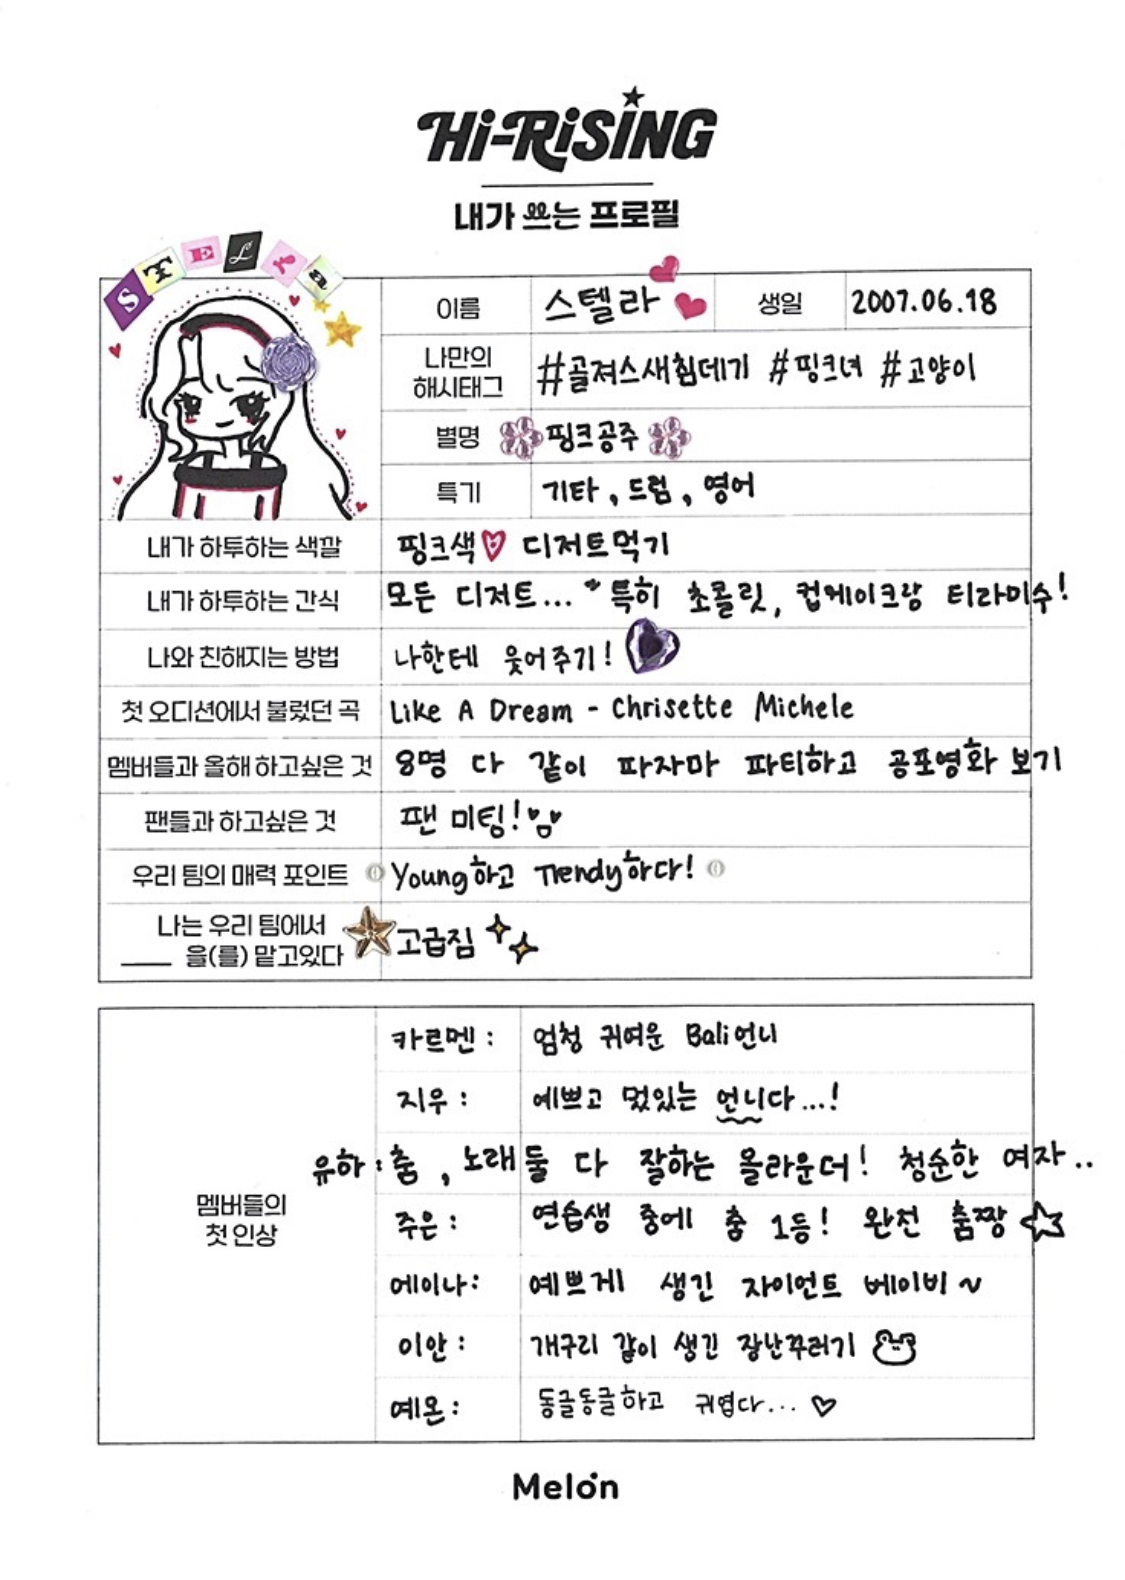 Hi-RiSiNG
내가 쓰는 프로필
STELLa
이름 스텔라 생일 2007.06.18
나만의
해시태그 #골져스새침데기 #핑크녀 #고양이
별명 핑크공주
특기 기타, 드럼, 영어
내가 하투하는 색깔 핑크색 디저트먹기
내가 하투하는 간식 모든 디저트... 특히 초콜릿, 컵케이크랑 티라미수!
나와 친해지는 방법 나한테 웃어주기!
첫 오디션에서 불렀던 곡 Like A Dream - Chrisette Michele
멤버들과 올해 하고싶은 것 8명 다 같이 파자마 파티하고 공포영화 보기
팬들과 하고싶은 것 팬 미팅!
우리 팀의 매력 포인트 Young하고 Trendy하다!
나는 우리 팀에서
____ 을(를) 맡고있다 고급짐
멤버들의
첫 인상
카르멘: 엄청 귀여운 Bali언니
지우: 예쁘고 멌있는 언니다...!
유하: 춤, 노래 둘 다 잘하는 올라운더! 청순한 여자..
주은: 연습생 중에 춤 1등! 완전 춤짱
에이나: 예쁘게 생긴 자이언트 베이비~
이안: 개구리 같이 생긴 장난꾸러기
예온: 동글동글하고 귀엽다...
Melon